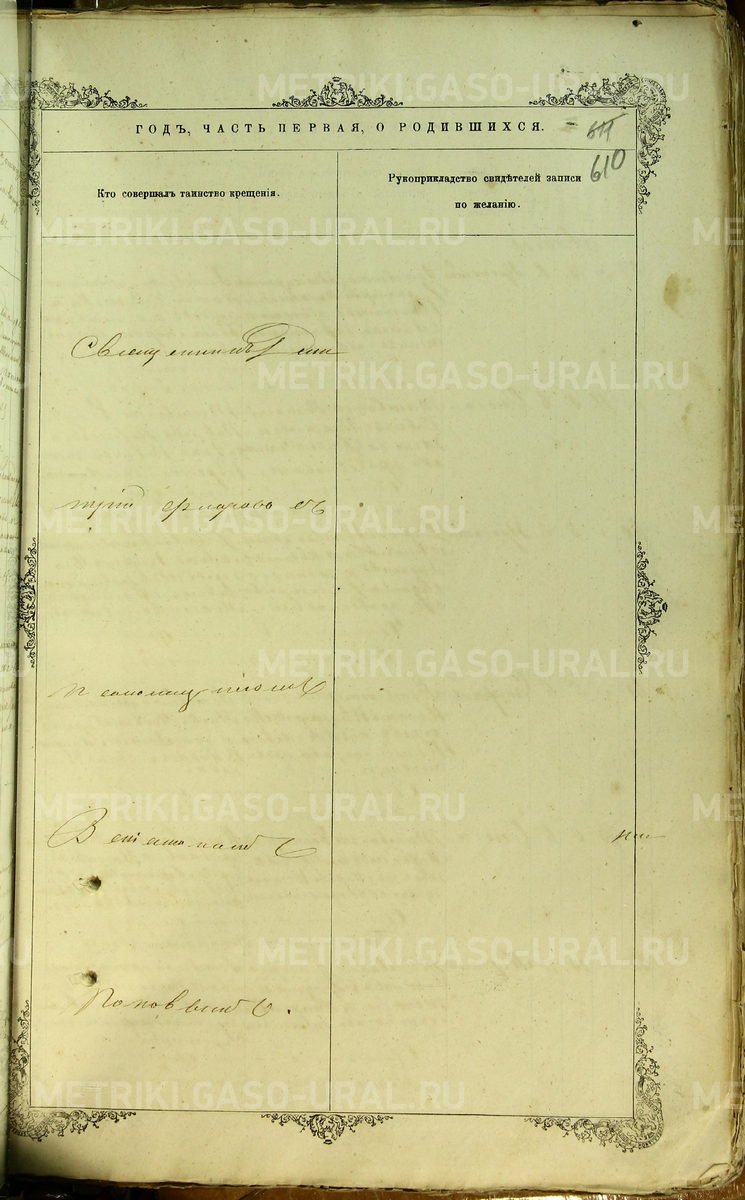 ГОДЪ, ЧАСТЬ ПЕРВАЯ, О РОДИВШИХСЯ.
611
610
Кто совершалъ таинство крещенія.
Рукоприкладство свидѣтелей записи
по желанію.
Священникъ Дми
трій
съ
псаломщикомъ
Веніаминомъ
Поповымъ.
METRIKI.GASO-URAL.RU